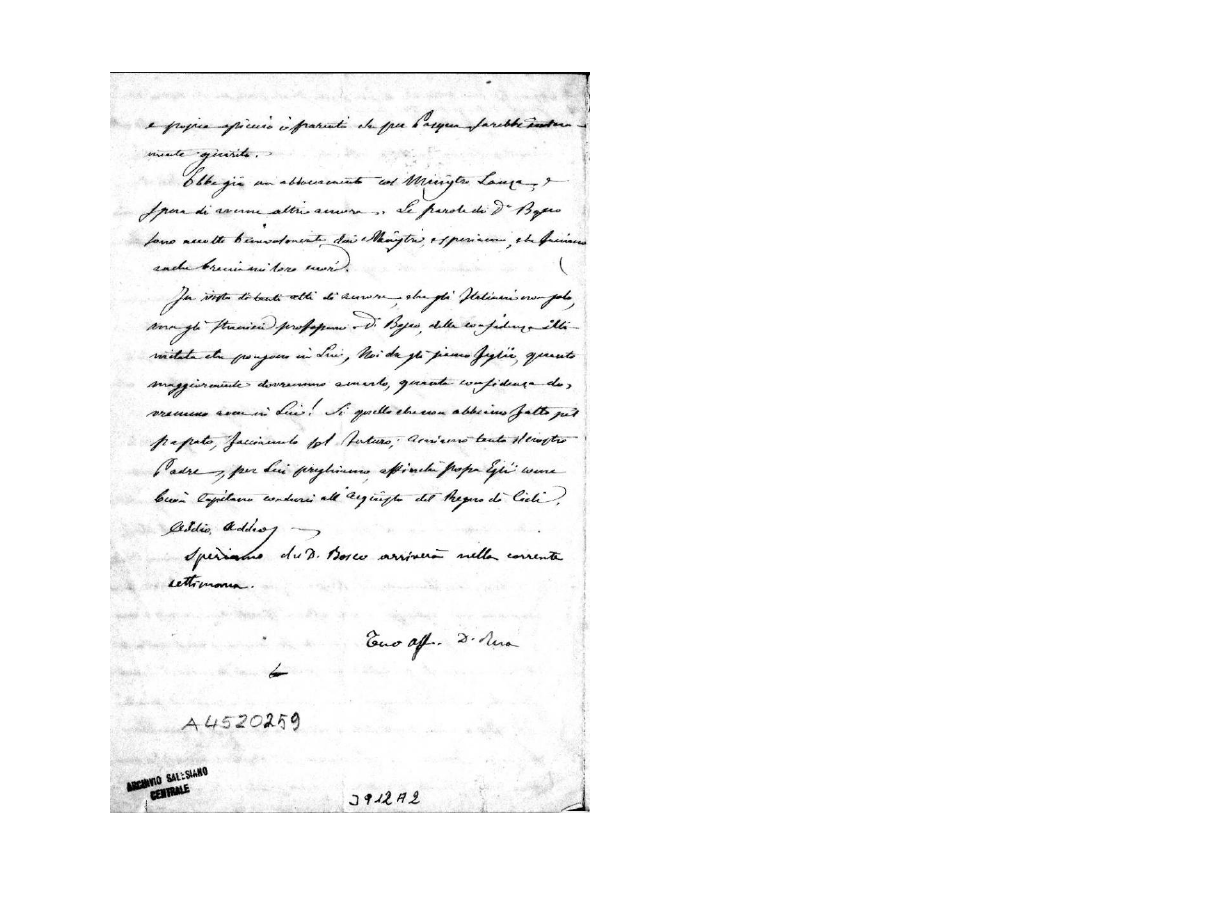 e proprio assicurò i parenti che per Pasqua sarebbe intera-
mente guarito.
Ebbe già un abboccamento col Ministro Lanza, e
spera di averne altri ancora. Le parole di D. Bosco
sono accolte benevolmente dai Ministri, e speriamo, che facciano
anche breccia nei loro cuori.
In vista di tanti atti di amore, che gli Italiani non solo,
ma gli stranieri professano a D. Bosco, della confidenza illi-
mitata che pongono in Lui, Noi che gli siamo figlii, quanto
maggiormente dovremmo amarlo, quanta confidenza do-
vremmo aver in Lui! Si quello che non abbiamo fatto pel
passato, facciamolo pel futuro; amiamo tanto il nostro
Padre, per Lui preghiamo, affinché possa Egli come
buon Capitano condurci all'acquisto del Regno de' Cieli.
Addio, Addio,
Speriamo che D. Bosco arriverà nella corrente
settimana.
Tuo aff. D. Rua
A4520259
ARCHIVIO SALESIANO
CENTRALE
3912A2